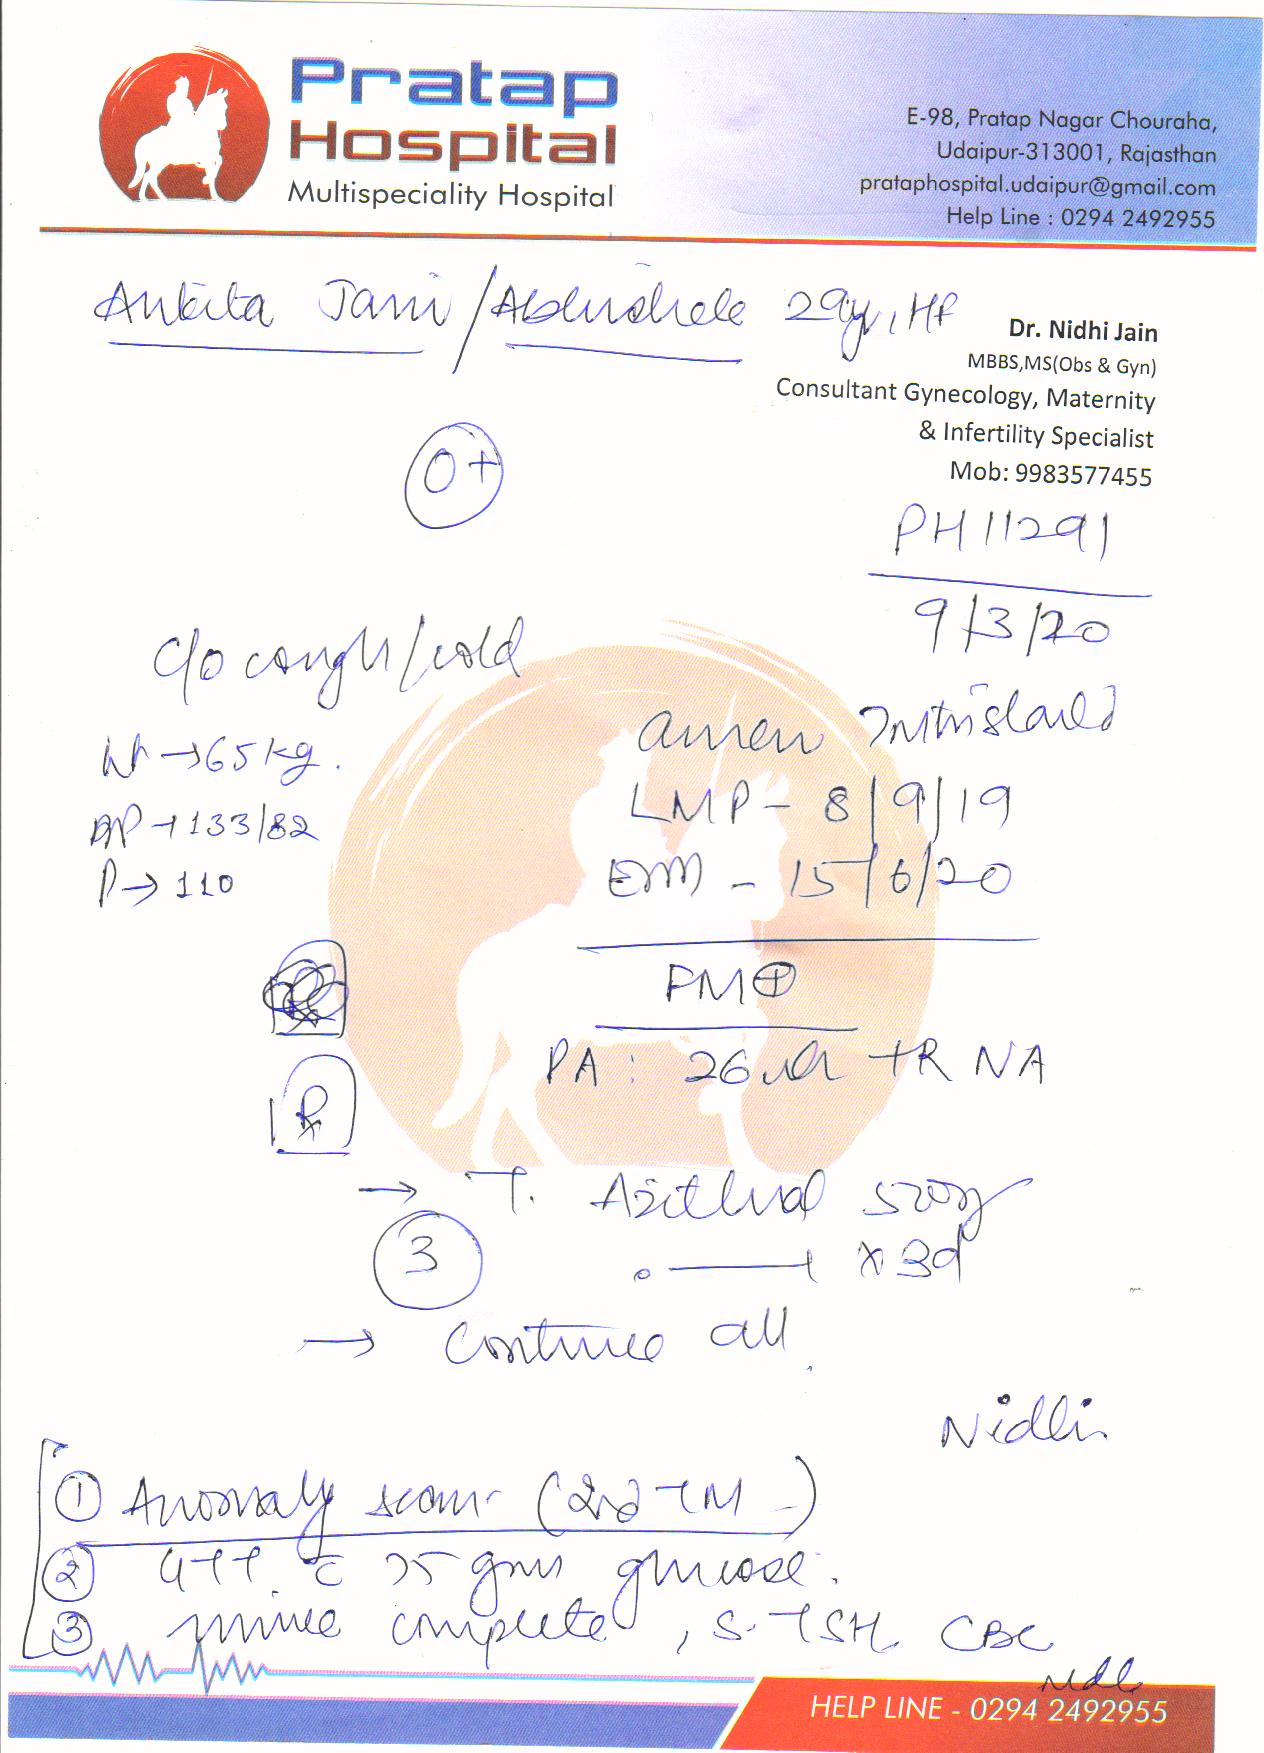 Pratap
Hospital
Multispeciality Hospital
E-98, Pratap Nagar Chouraha,
Udaipur-313001, Rajasthan
prataphospital.udaipur@gmail.com
Help Line : 0294 2492955
Ankita Jani / 29y, Hf
Dr. Nidhi Jain
MBBS,MS(Obs & Gyn)
Consultant Gynecology, Maternity
& Infertility Specialist
Mob: 9983577455
O+
PH11291
9/3/20
c/o cough/cold
Wt → 65 kg.
BP → 133/82
P → 110
LMP - 8/9/19
- 15/6/20
FM⊕
PA : 26 NA
Rx
→ T. 500
3
x 3d
→ Continue all
Nidhi
① Anomaly scan (2nd TM -)
② GTT c 75 gms glucose.
③ urine complete, S. TSH CBC
HELP LINE - 0294 2492955